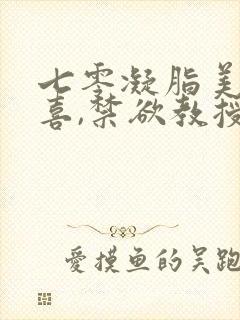 七零凝脂美
喜,禁欲教授
愛摸鱼的吴跑